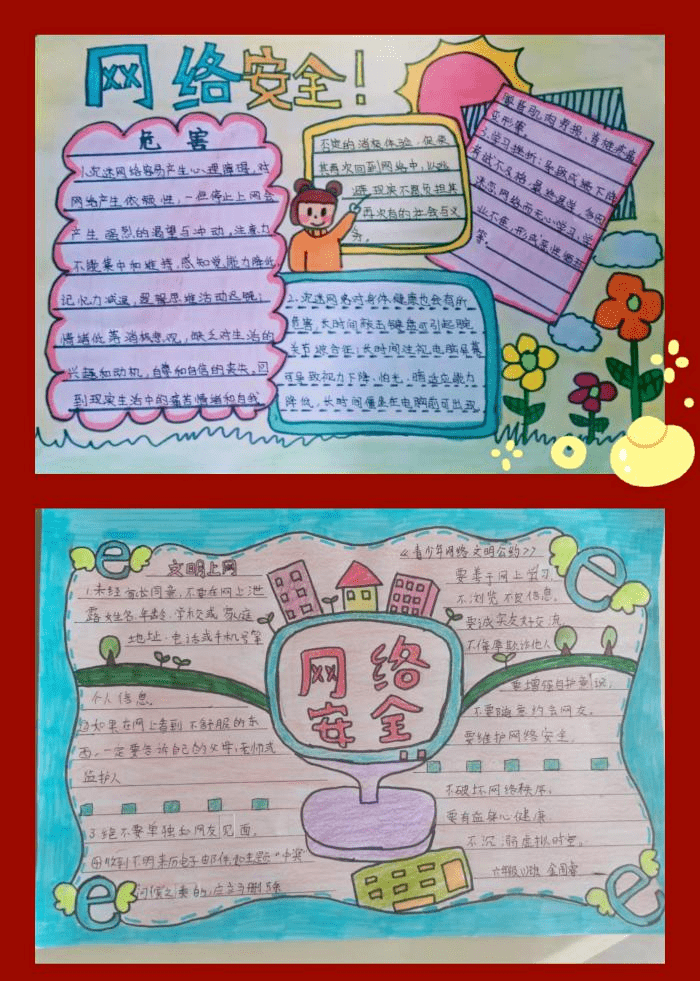 网络安全!
危害
1.沉迷网络容易产生心理障碍,对
网络产生依赖性,一但停止上网会
产生强烈的渴望与冲动,注意力
不能集中和维持,感知觉能力降低,
记忆力减退,逻辑思维活动迟钝;
情绪低落消极悲观,缺乏对生活的
兴趣和动机,自尊和自信的丧失,回
到现实生活中的痛苦情绪和自我
否定的消极体验,促使
其再次回到网络中,以逃
避现实不愿负担其
再次有的社会与义
务。
2.沉迷网络对身体健康也会有所
危害,长时间敲击键盘可引起腕
关节综合征;长时间注视电脑屏幕
可导致视力下降,怕光,暗适应能力
降低,长时间僵坐在电脑前可出现
腰背肌肉劳损,脊椎疼痛
变形等。
3.学习挫折:导致成绩下降
考试不及格,最终退学,多因
迷恋网络而无心学习,学
业不佳,形成恶性循环
等。
文明上网
1.未经家长同意,不要在网上泄
露姓名、年龄、学校或家庭
地址、电话或手机号等
个人信息。
②如果在网上看到不舒服的东
西,一定要告诉自己的父母,老师或
监护人
3.绝不要单独和网友见面。
④收到不明来历电子邮件如主题"中奖"
问候之类的,应立马删除
网络
安全
《青少年网络文明公约》
要善于网上学习,
不浏览不良信息。
要诚实友好交流,
不侮辱欺诈他人
要增强自护意识,
不要随意约会网友。
要维护网络安全,
不破坏网络秩序,
要有益身心健康
不沉溺虚拟时空。